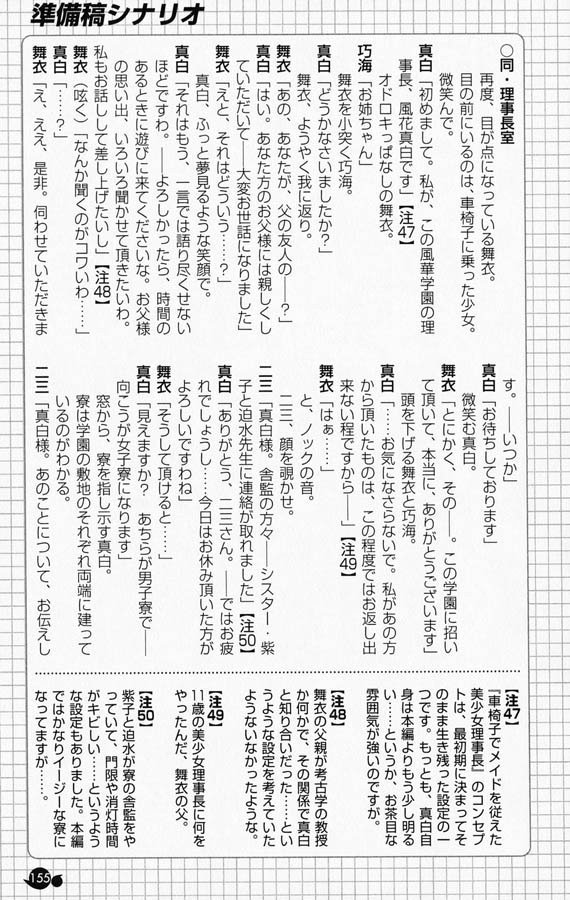 準備稿シナリオ
○同・理事長室
再度、目が点になっている舞衣。
目の前にいるのは、車椅子に乗った少女。
微笑んで。
真白「初めまして。私が、この風華学園の理
事長、風花真白です」【注47】
オドロキっぱなしの舞衣。
巧海「お姉ちゃん」
舞衣を小突く巧海。
真白「どうかなさいましたか?」
舞衣、ようやく我に返り。
舞衣「あの、あなたが、父の友人の――?」
真白「はい。あなた方のお父様には親しくし
ていただいて――大変お世話になりました」
舞衣「えと、それはどういう……?」
真白、ふっと夢見るような笑顔で。
真白「それはもう、一言では語り尽くせない
ほどですわ。――よろしかったら、時間の
あるときに遊びに来てくださいな。お父様
の思い出、いろいろ聞かせて頂きたいわ。
私もお話しして差し上げたいし」【注48】
舞衣(呟く)「なんか聞くのがコワいわ……」
真白「……?」
舞衣「え、ええ、是非。伺わせていただきま
す。――いつか」
真白「お待ちしております」
微笑む真白。
舞衣「とにかく、その――。この学園に招い
て頂いて、本当に、ありがとうございます」
頭を下げる舞衣と巧海。
真白「……お気になさらないで。私があの方
から頂いたものは、この程度ではお返し出
来ない程ですから――」【注49】
舞衣「はぁ……」
と、ノックの音。
二三、顔を覗かせ。
二三「真白様。舎監の方々――シスター・紫
子と迫水先生に連絡が取れました」【注50】
真白「ありがとう、二三さん。――ではお疲
れでしょうし……今日はお休み頂いた方が
よろしいですわね」
舞衣「そうして頂けると……」
真白「見えますか? あちらが男子寮で――
向こうが女子寮になります」
窓から、寮を指し示す真白。
寮は学園の敷地のそれぞれ両端に建って
いるのがわかる。
二三「真白様。あのことについて、お伝えし
【注47】
『車椅子でメイドを従えた
美少女理事長』のコンセプ
トは、最初期に決まってそ
のまま生き残った設定の一
つです。もっとも、真白自
身は本編よりもう少し明る
い……というか、お茶目な
雰囲気が強いのですが。
【注48】
舞衣の父親が考古学の教授
か何かで、その関係で真白
と知り合いだった……とい
うような設定を考えていた
ようないなかったような。
【注49】
11歳の美少女理事長に何を
やったんだ、舞衣の父。
【注50】
紫子と迫水が寮の舎監をや
っていて、門限や消灯時間
がキビしい……というよう
な設定もありました。本編
ではかなりイージーな寮に
なってますが……。
155